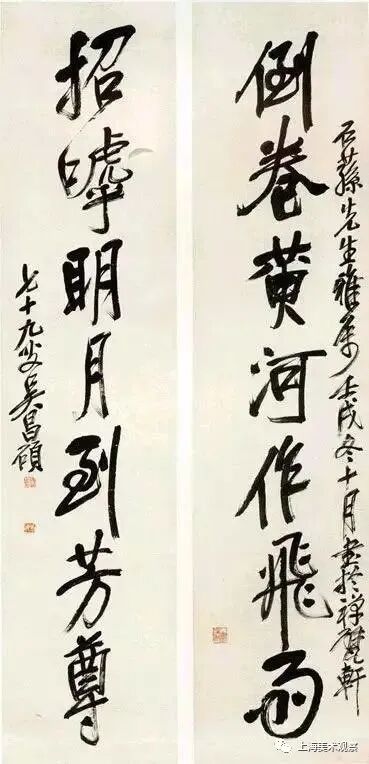 石蓀先生雅屬壬戌冬十月書於禪甓軒
倒卷黃河作飛雨
招嘑明月到芳尊
七十九叟吳昌碩
上海美术观察